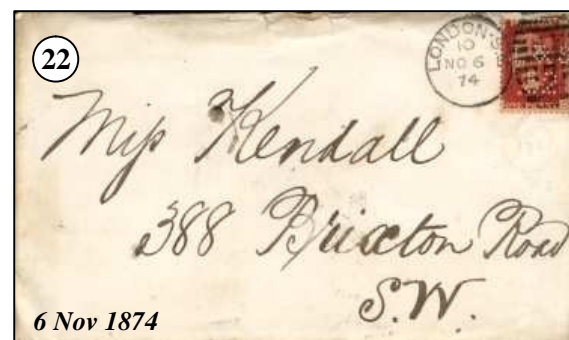 22
LONDON·S
10
NO 6
74
Miss Kendall
388 Brixton Road
S.W.
6 Nov 1874